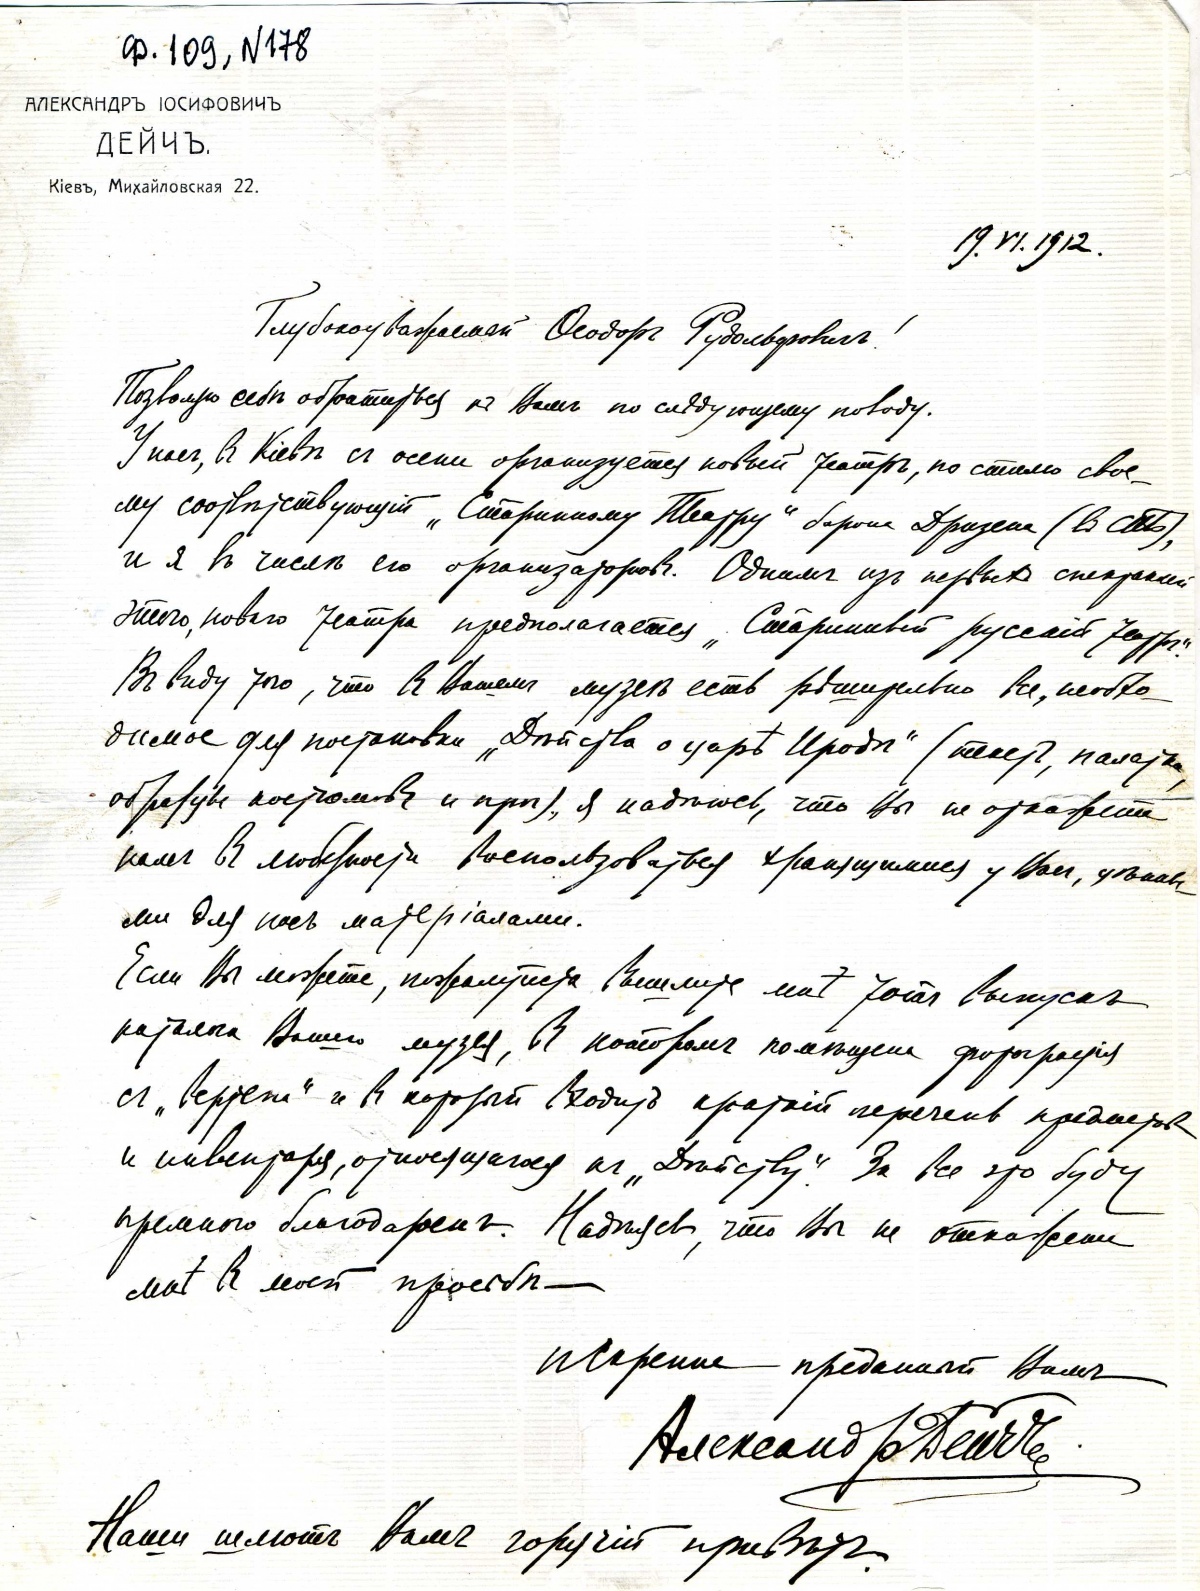 Ф. 109, N178
АЛЕКСАНДРЪ ІОСИФОВИЧЪ
ДЕЙЧЪ.
Кіевъ, Михайловская 22.
19. VI. 1912.
Глубокоуважаемый Ѳеодоръ Рудольфовичъ!
Позволю себѣ обратиться къ Вамъ по слѣдующему поводу.
У насъ, въ Кіевѣ съ осени организуется новый театръ, по стилю свое-
му соотвѣтствующій „Старинному Театру“ барона Дризена (въ СПБ),
и я въ числѣ его организаторовъ. Однимъ изъ первыхъ спектаклей
этого, новаго театра предполагается „Старинный русскій театръ“.
Въ виду того, что въ Вашемъ музеѣ есть рѣшительно все, необхо-
димое для постановки „Дѣйства о царѣ Иродѣ“ (текстъ, палатка,
образцы костюмовъ и проч.), я надѣюсь, что Вы не откажете
намъ въ любезности воспользоваться хранящимися у Васъ, цѣнны-
ми для насъ матеріалами.
Если Вы можете, пожалуйста вышлите мнѣ тотъ выпускъ
каталога Вашего музея, въ которомъ помѣщена фотографія
съ „Вертепа“ и въ который входитъ краткій перечень предметовъ
и инвентаря, относящагося къ „Дѣйству“. За все это буду
премного благодаренъ. Надѣясь, что Вы не откажете
мнѣ въ моей просьбѣ —
искренне преданный Вамъ
Александръ Дейчъ.
Наши шлютъ Вамъ горячій привѣтъ.